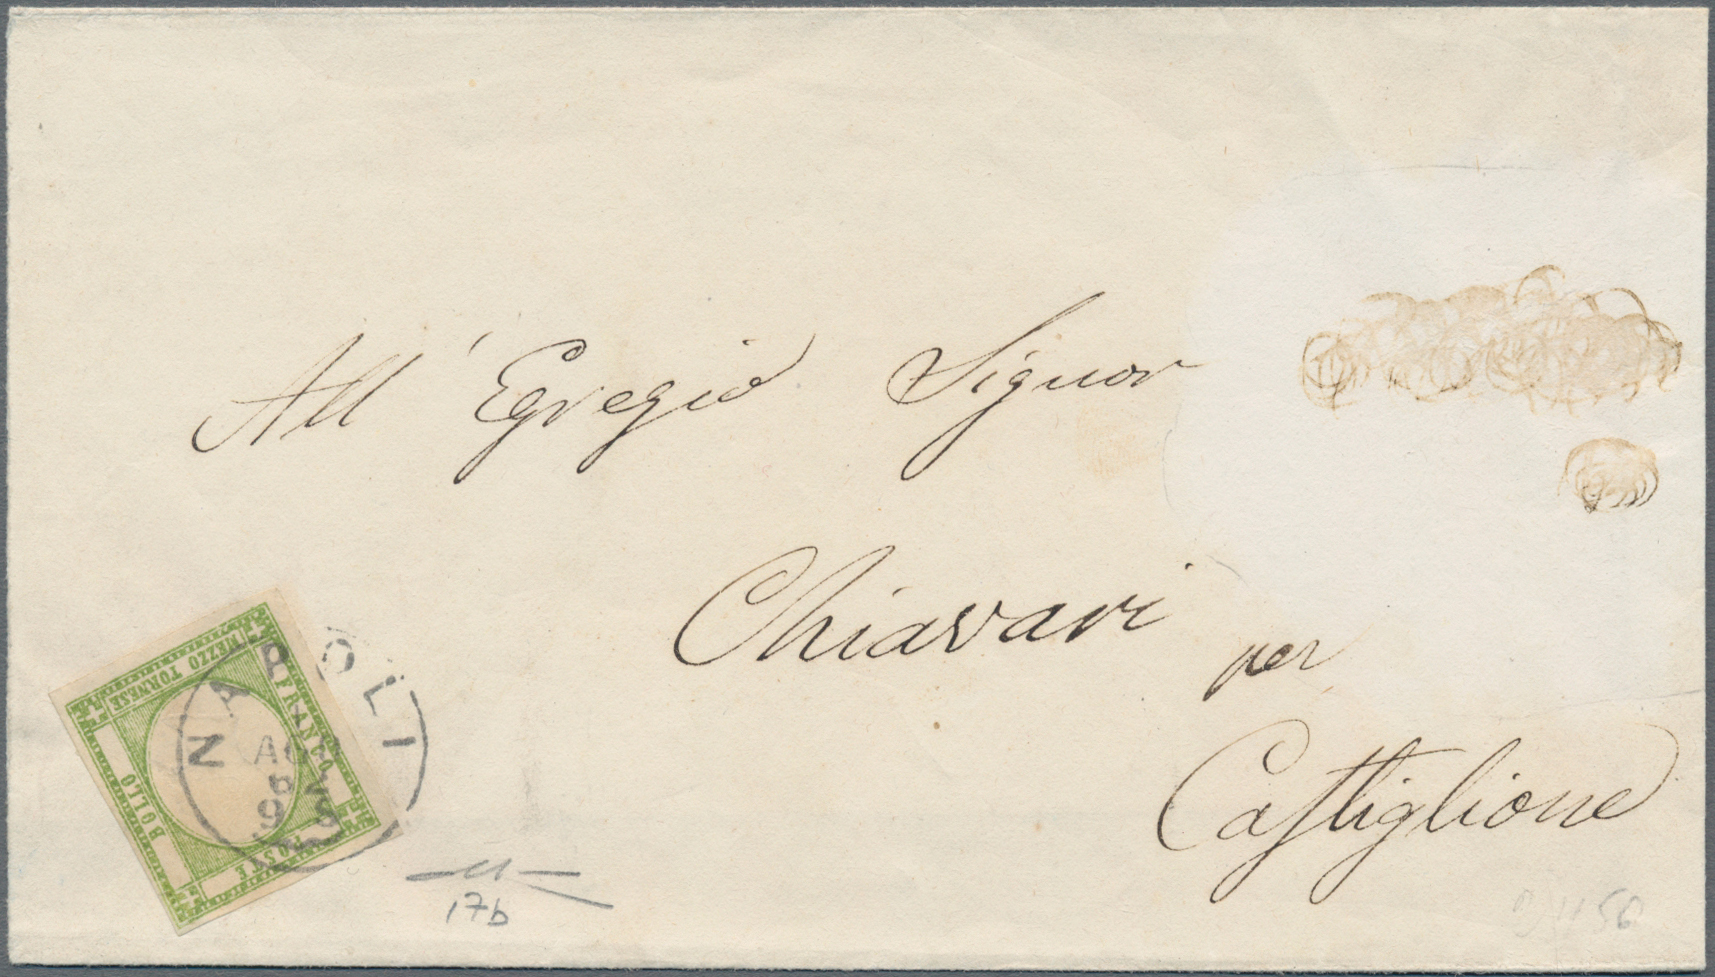 All' Egregio Signor
Chiavari
per
Castiglione
NAPOLI
FRANCO
BOLLO
POSTE
MEZZO TORNESE
17b